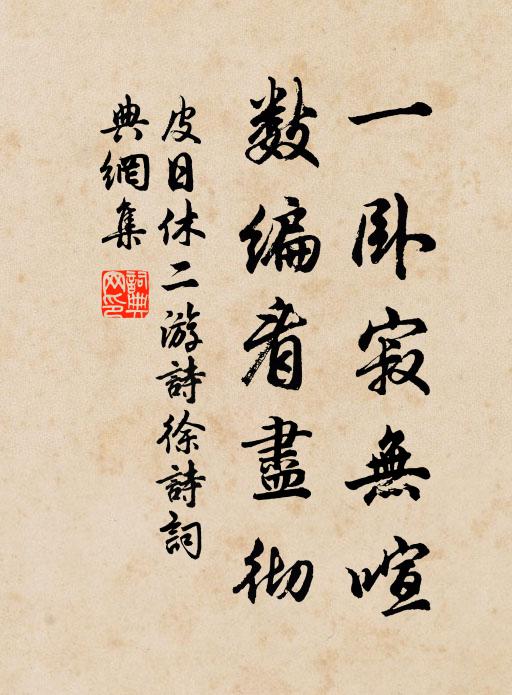 一臥寂無喧
數編看盡彻
皮日休二游詩徐詩詞
典網集
詞典网印